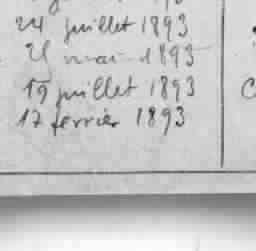 24 juillet 1893
21 mai 1893
19 juillet 1893
17 fevrier 1893